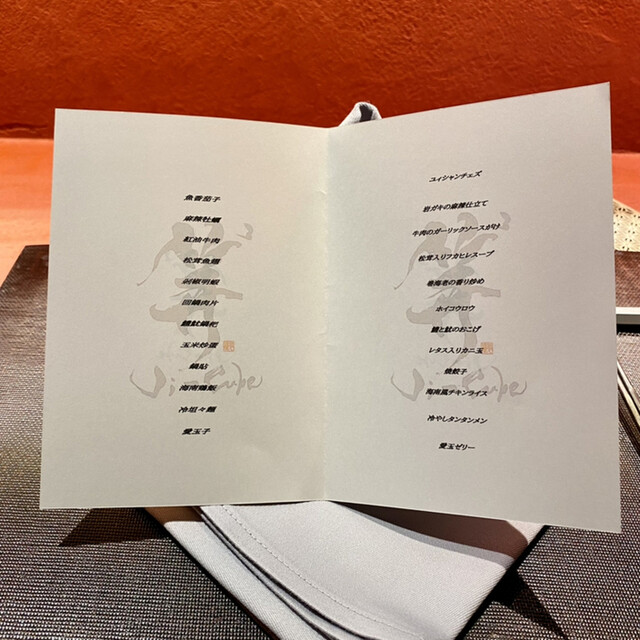 魚香茄子
麻辣牡蠣
紅油牛肉
松茸魚翅
剁椒明蝦
回鍋肉片
鱧魷鍋粑
玉米炒蛋
鍋貼
海南雞飯
冷坦々麺
愛玉子
ユイシャンチェズ
岩ガキの麻辣仕立て
牛肉のガーリックソースがけ
松茸入りフカヒレスープ
巻海老の香り炒め
ホイコウロウ
鱧と魷のおこげ
レタス入りカニ玉
焼餃子
海南風チキンライス
冷やしタンタンメン
愛玉ゼリー